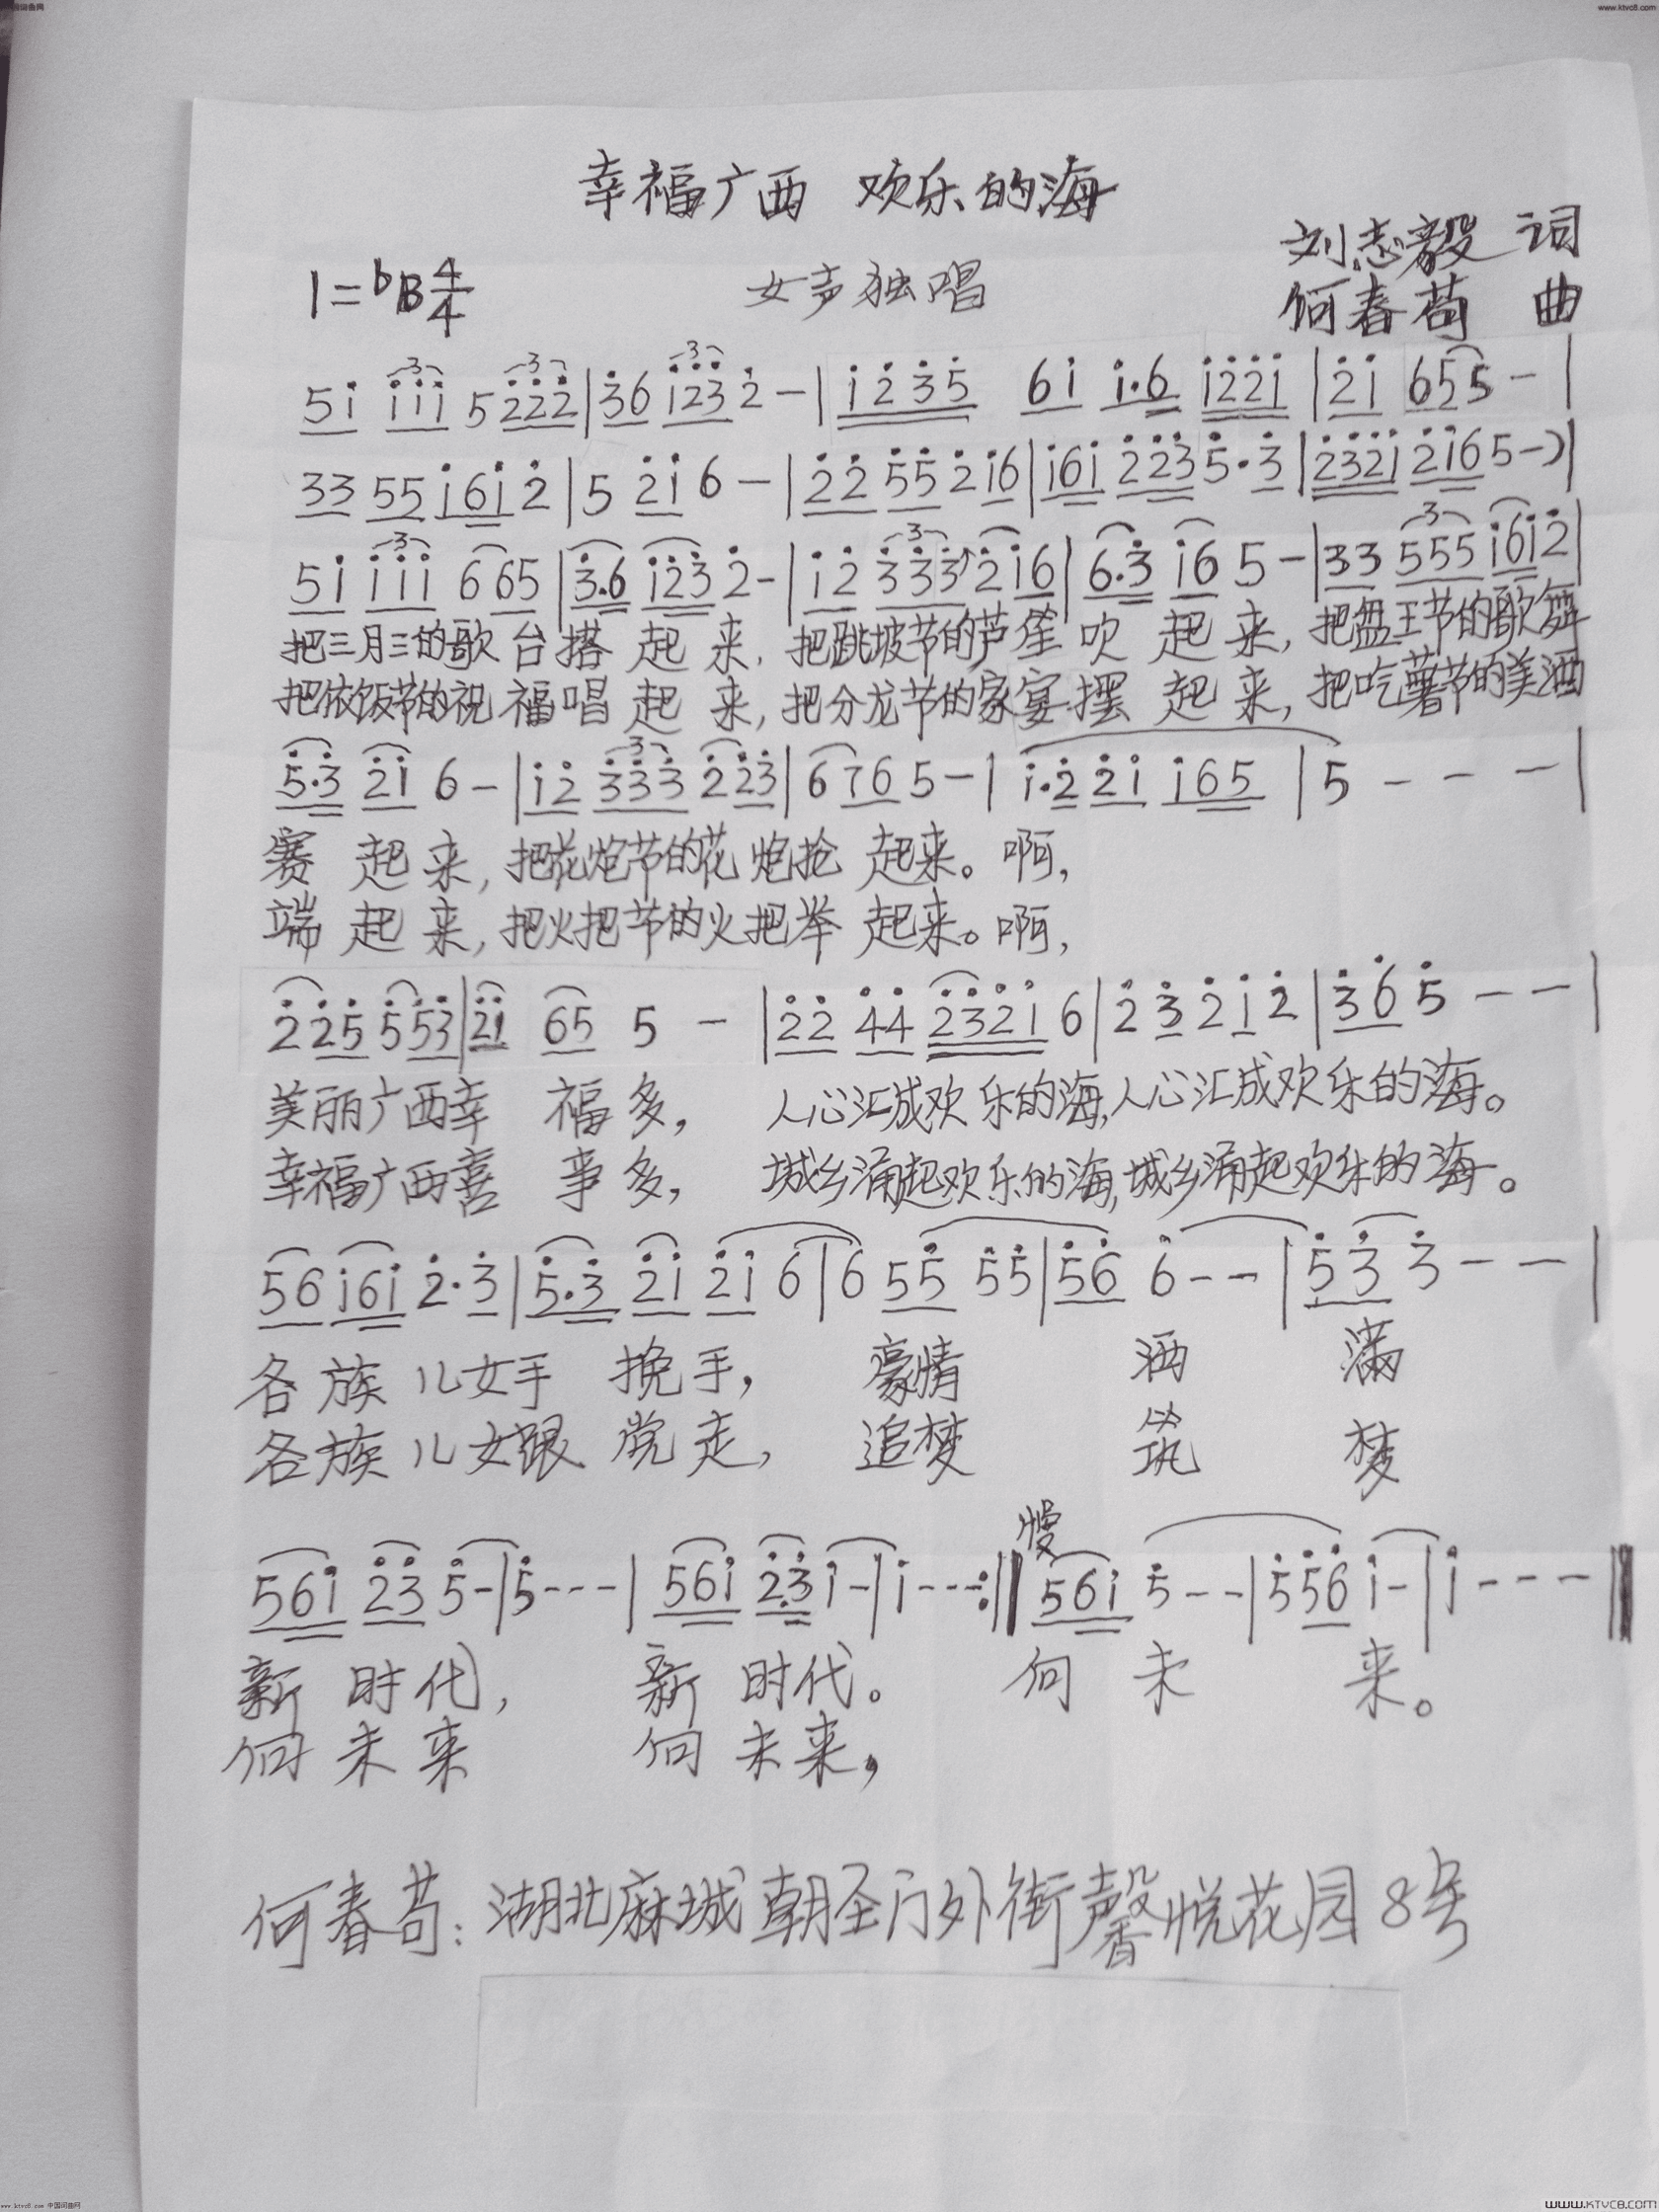 www.ktvc8.com
幸福广西 欢乐的海
刘志毅 词
1=♭B 4/4 女声独唱
何春苟 曲
5i iii 5222|36 1232-|1235 6i i·6 i22i|2i 655-|
33 55 i6i2|5 2i 6-|22 55 2i6|i6i 2235·3|232i 2i65-)|
5i iii 665|3·6 i232-|i2 3332i6|6·3 i6 5-|33 555i6i2|
把三月三的歌台搭起来,把跳坡节的芦笙吹起来,把盘王节的歌舞
把依饭节的祝福唱起来,把分龙节的家宴摆起来,把吃薯节的美酒
5·3 2i 6-|i2 333 223|676 5-|i·2 2i i65|5---|
赛起来,把花炮节的花炮抢起来。啊,
端起来,把火把节的火把举起来。啊,
225 553|2i 65 5-|22 44 232i 6|2 3 2 i 2|365--|
美丽广西幸福多,人心汇成欢乐的海,人心汇成欢乐的海。
幸福广西喜事多,城乡涌起欢乐的海,城乡涌起欢乐的海。
56 i6i 2·3|5·3 2i 2i 6|6 55 55|56 6--|53 3--|
各族儿女手挽手,豪情洒满
各族儿女跟党走,追梦筑梦
慢
56i 23 5-|5---|56i 23 i-|i---:‖56i 5--|556 i-|i---‖
新时代,新时代。向未来。
向未来 向未来,
何春苟:湖北麻城朝圣门外街馨悦花园8号
www.ktvc8.com 中国词曲网
www.KTVC8.com